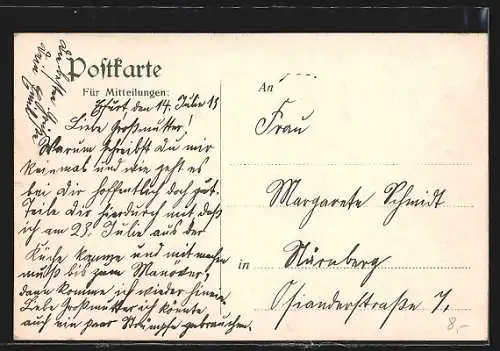 Postkarte
Für Mitteilungen:
Erfurt den 14. Julie 13
Liebe Großmutter!
Warum schreibst du mir
keinmal und wie geht es
bei Dir hoffentlich doch gut.
Teile Dir hierdurch mit daß
ich am 28. Julie aus der
Küche komme und mit machen
muß bis zum Manöver,
dann komme ich wieder hinein.
Liebe Großmutter ich könnte
auch ein paar Strümpfe gebrauchen.
Dein
An
Frau
Margarete Schmidt
in Nürnberg
Osianderstraße 7/.
8,-